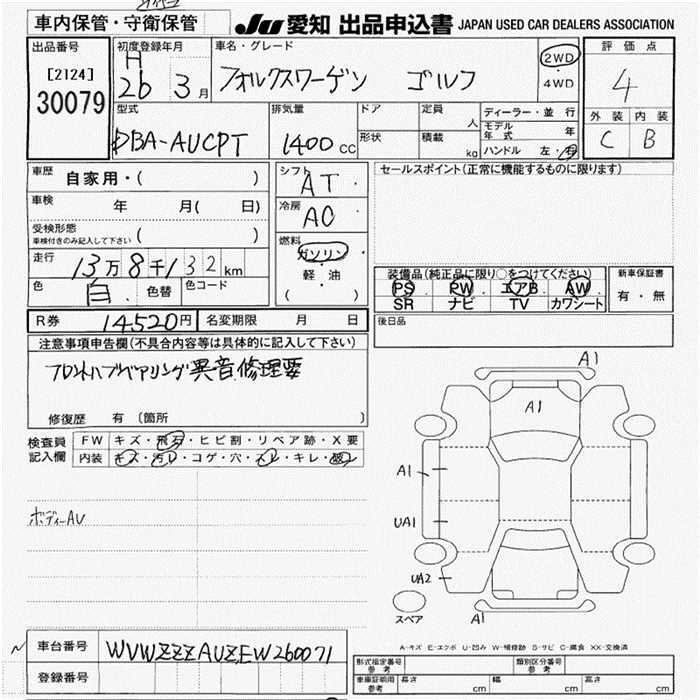 車内保管・守衛保管
JU 愛知 出品申込書 JAPAN USED CAR DEALERS ASSOCIATION
出品番号 初度登録年月 車名・グレード 評価点
[2124]
30079
H
26 3月
フォルクスワーゲン ゴルフ
2WD
・
4WD
4
外装 内装
C B
型式 排気量 ドア 定員 人 ディーラー・並行
DBA-AUCPT 1400cc
形状 積載 kg
モデル年式 年
ハンドル 左・右
車歴 自家用・( )
車検 年 月( 日)
受検形態
車検付きのみ記入して下さい ( )
走行 13万8千132km
色 白 色替 色コード
シフト
AT
冷房
AC
燃料
ガソリン
・
軽・油
( )
セールスポイント(正常に機能するものに限ります)
装備品(純正品に限り○をつけてください)
PS・PW・エアB・AW
SR ナビ TV カワシート
新車保証書
有・無
後日品
R券 14520円 名変期限 月 日
注意事項申告欄(不具合内容等は具体的に記入して下さい)
フロントハブベアリング異音修理要
修復歴 有〔箇所 〕
検査員
記入欄
FW キズ・飛石・ヒビ割・リペア跡・X要
内装 キズ・汚レ・コゲ・穴・スレ・キレ・
ボディーAU
A1
A1
A1
UA1
UA2
A1
スペア
A-キズ E-エクボ U-凹み W-補修跡 S-サビ C-腐食 XX-交換済
車台番号 WVWZZZAUZEW260071
登録番号
形式指定番号
参考
類別区分番号
参考
車庫証明用
参考
長さ cm 幅 cm 高さ cm